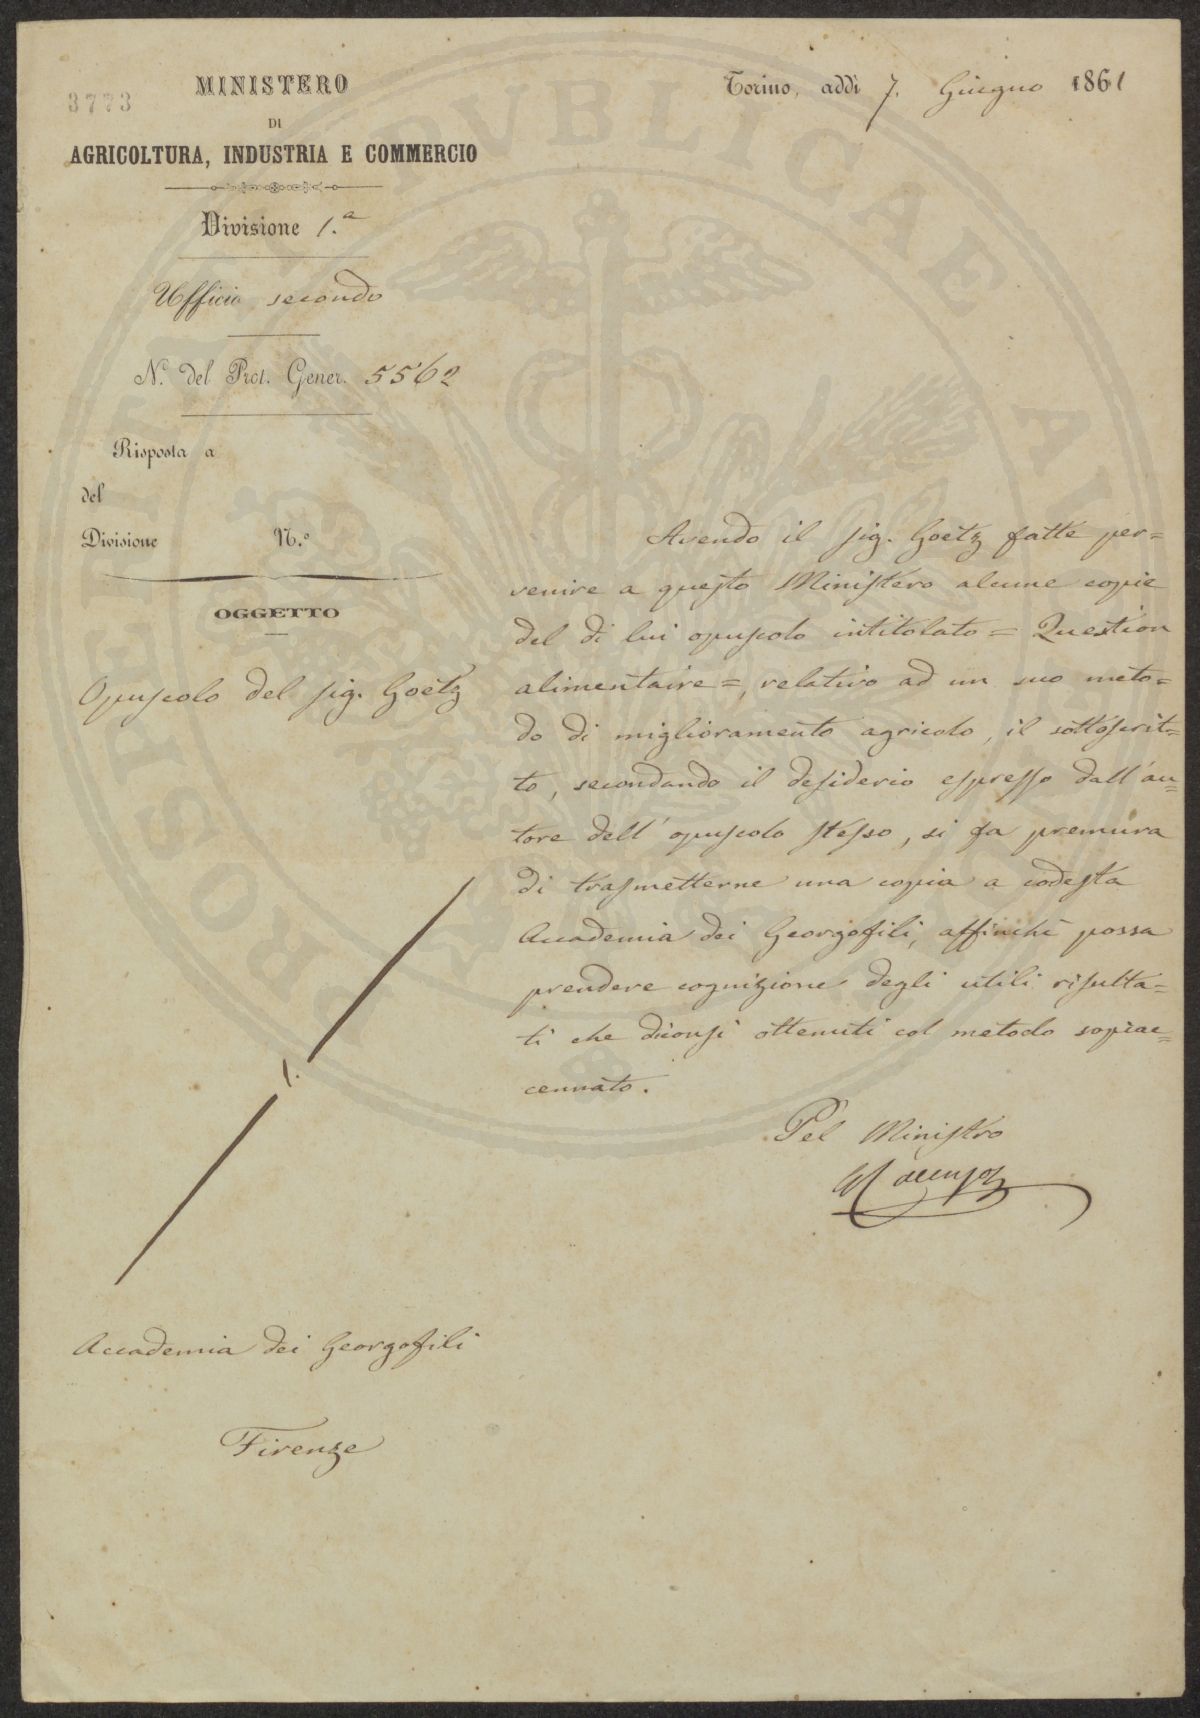 3773
MINISTERO
DI
AGRICOLTURA, INDUSTRIA E COMMERCIO
Divisione 1.a
Ufficio secondo
N.o del Prot. Gener. 5562
Risposta a
del
Divisione N.o
OGGETTO
Opuscolo del sig. Goëtz
Torino, addì 7. Giugno 1861
Avendo il sig. Goëtz fatte per=
venire a questo Ministero alcune copie
del di lui opuscolo intitolato = Question
alimentaire =, relativo ad un suo meto=
do di miglioramento agricolo, il sottoscrit=
to, secondando il desiderio espresso dall'au=
tore dell'opuscolo stesso, si fa premura
di trasmetterne una copia a codesta
Accademia dei Georgofili, affinchè possa
prendere cognizione degli utili risulta=
ti che diconsi ottenuti col metodo sopiac=
cennato.
Pel Ministro
Accademia dei Georgofili
Firenze